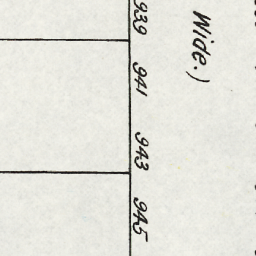 Wide.)
939 941 943 945